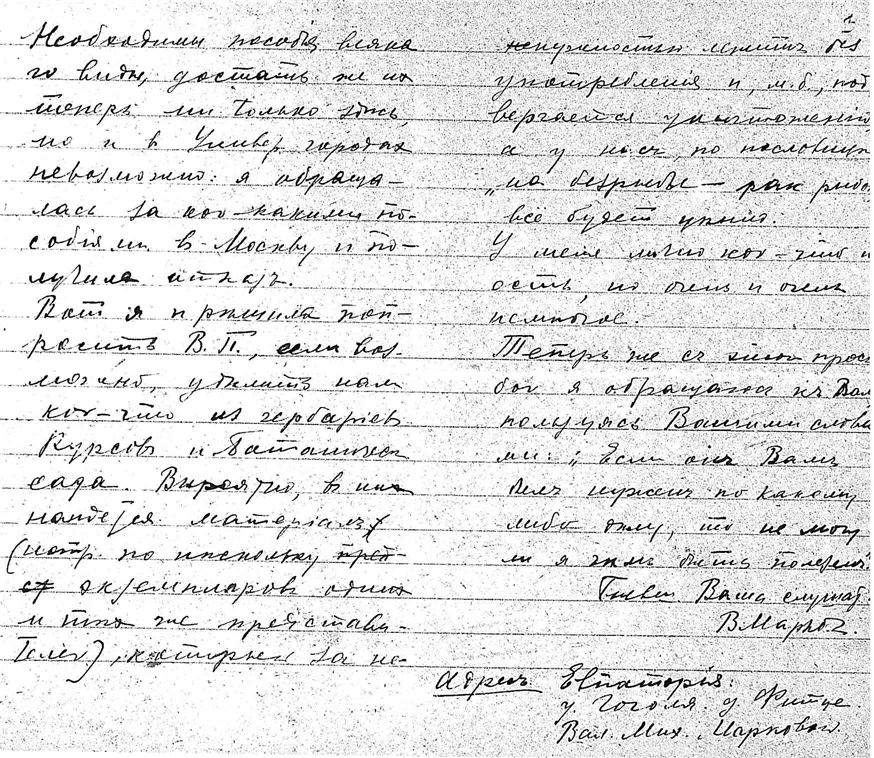 Необходимы пособія всяка
го вида, достать же их
теперь не только здесь,
но и в Универ. городах
невозможно: я обраща-
лась за кое-какими по-
собіями в Москву и по-
лучила отказ.
Вот я и решила поп-
росить В.П., если воз-
можно, удѣлить нам
кое-что из гербаріев
Курсов и Ботаническ
сада. Вѣроятно, в них
найдется матеріалъ
(напр. по нескольку
экземпляров одних
и тех же представи-
телей), которые за не-
ненужностью лежитъ без
употребления и, м.б., под
вергается уничтоженію
а у насъ, по пословице
„на безрыбье – рак рыба
всё будет
У меня лично кое-что и
есть, но очень и очень
немногое.
Теперь же съ этою прось
бой я обращаюсь къ Вам
пользуясь Вашими слова
ми: „Если онъ Вамъ
нуженъ по какому
либо делу, то не могу
ли я Вамъ быть полезенъ.
Готовая къ Ваша слугаю
ВМарков.
Адресъ Евпаторія.
у. Гоголя. д.
Вал. Мих. Марковой.